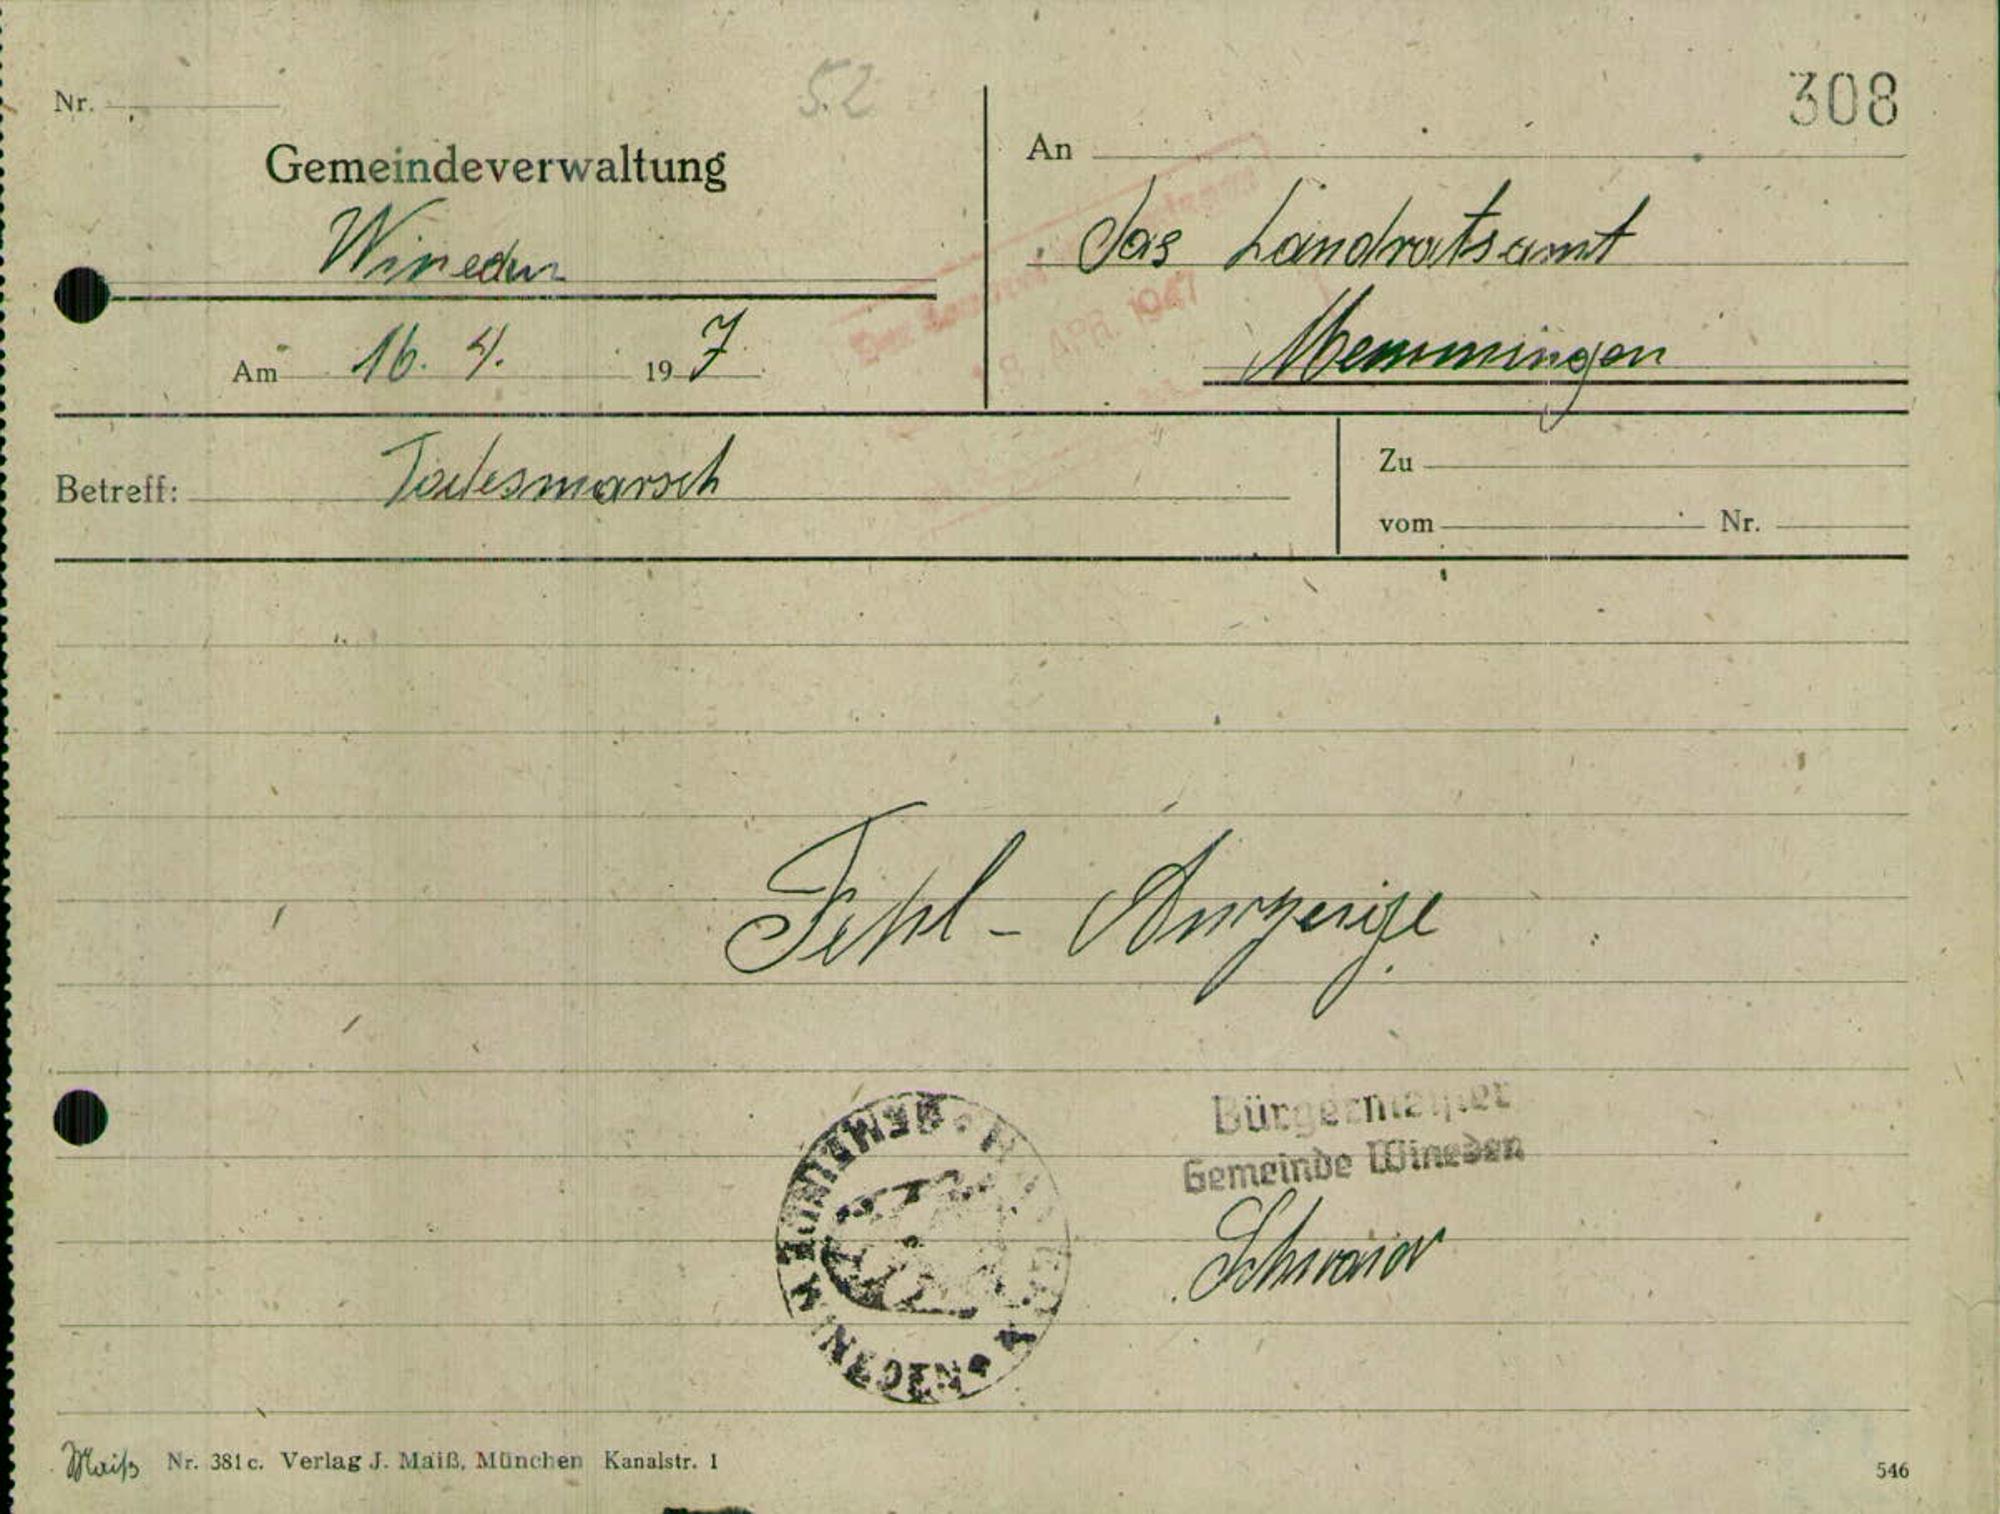 52
308
Nr.
Gemeindeverwaltung
Wineden
Am 16. 4. 19 7
An
das Landratsamt
Memmingen
APR. 1947
Betreff: Todesmarsch
Zu
vom Nr.
Fehl - Anzeige
Bürgermeister
Gemeinde Wineden
GEMEINDE WINEDEN
Schwaier
Maiß Nr. 381c. Verlag J. Maiß, München Kanalstr. 1
546